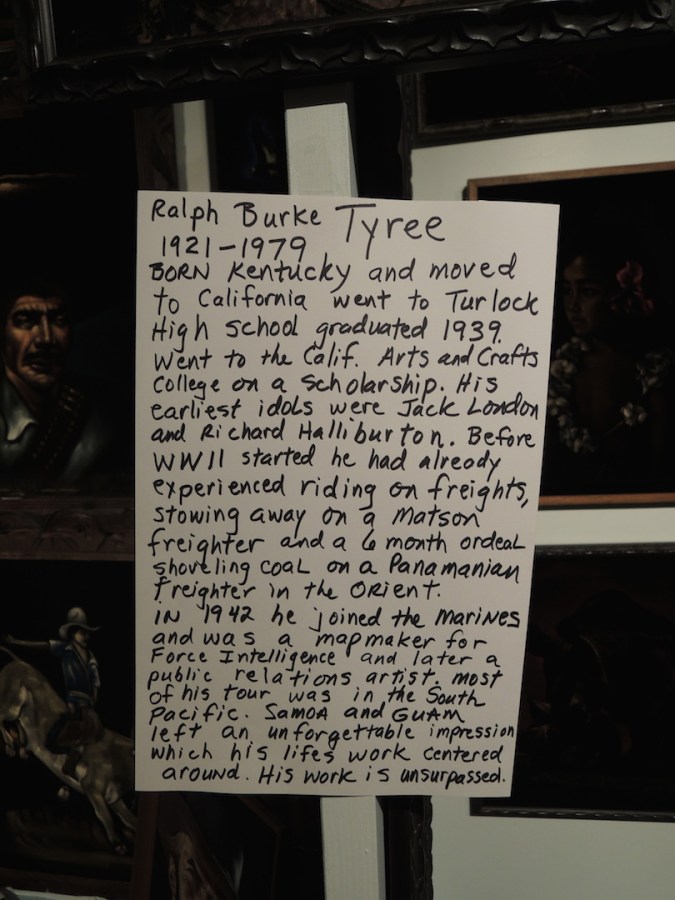 Ralph Burke Tyree
1921-1979
BORN Kentucky and moved
to California went to Turlock
High school graduated 1939.
Went to the Calif. Arts and Crafts
College on a Scholarship. His
earliest idols were Jack London
and Richard Halliburton. Before
WWII started he had already
experienced riding on freights,
stowing away on a Matson
freighter and a 6 month ordeal
shoveling coal on a Panamanian
freighter in the Orient.
IN 1942 he joined the Marines
and was a mapmaker for
Force Intelligence and later a
public relations artist. most
of his tour was in the South
Pacific. SAMOA and GUAM
left an unforgettable impression
which his lifes work centered
around. His work is unsurpassed.